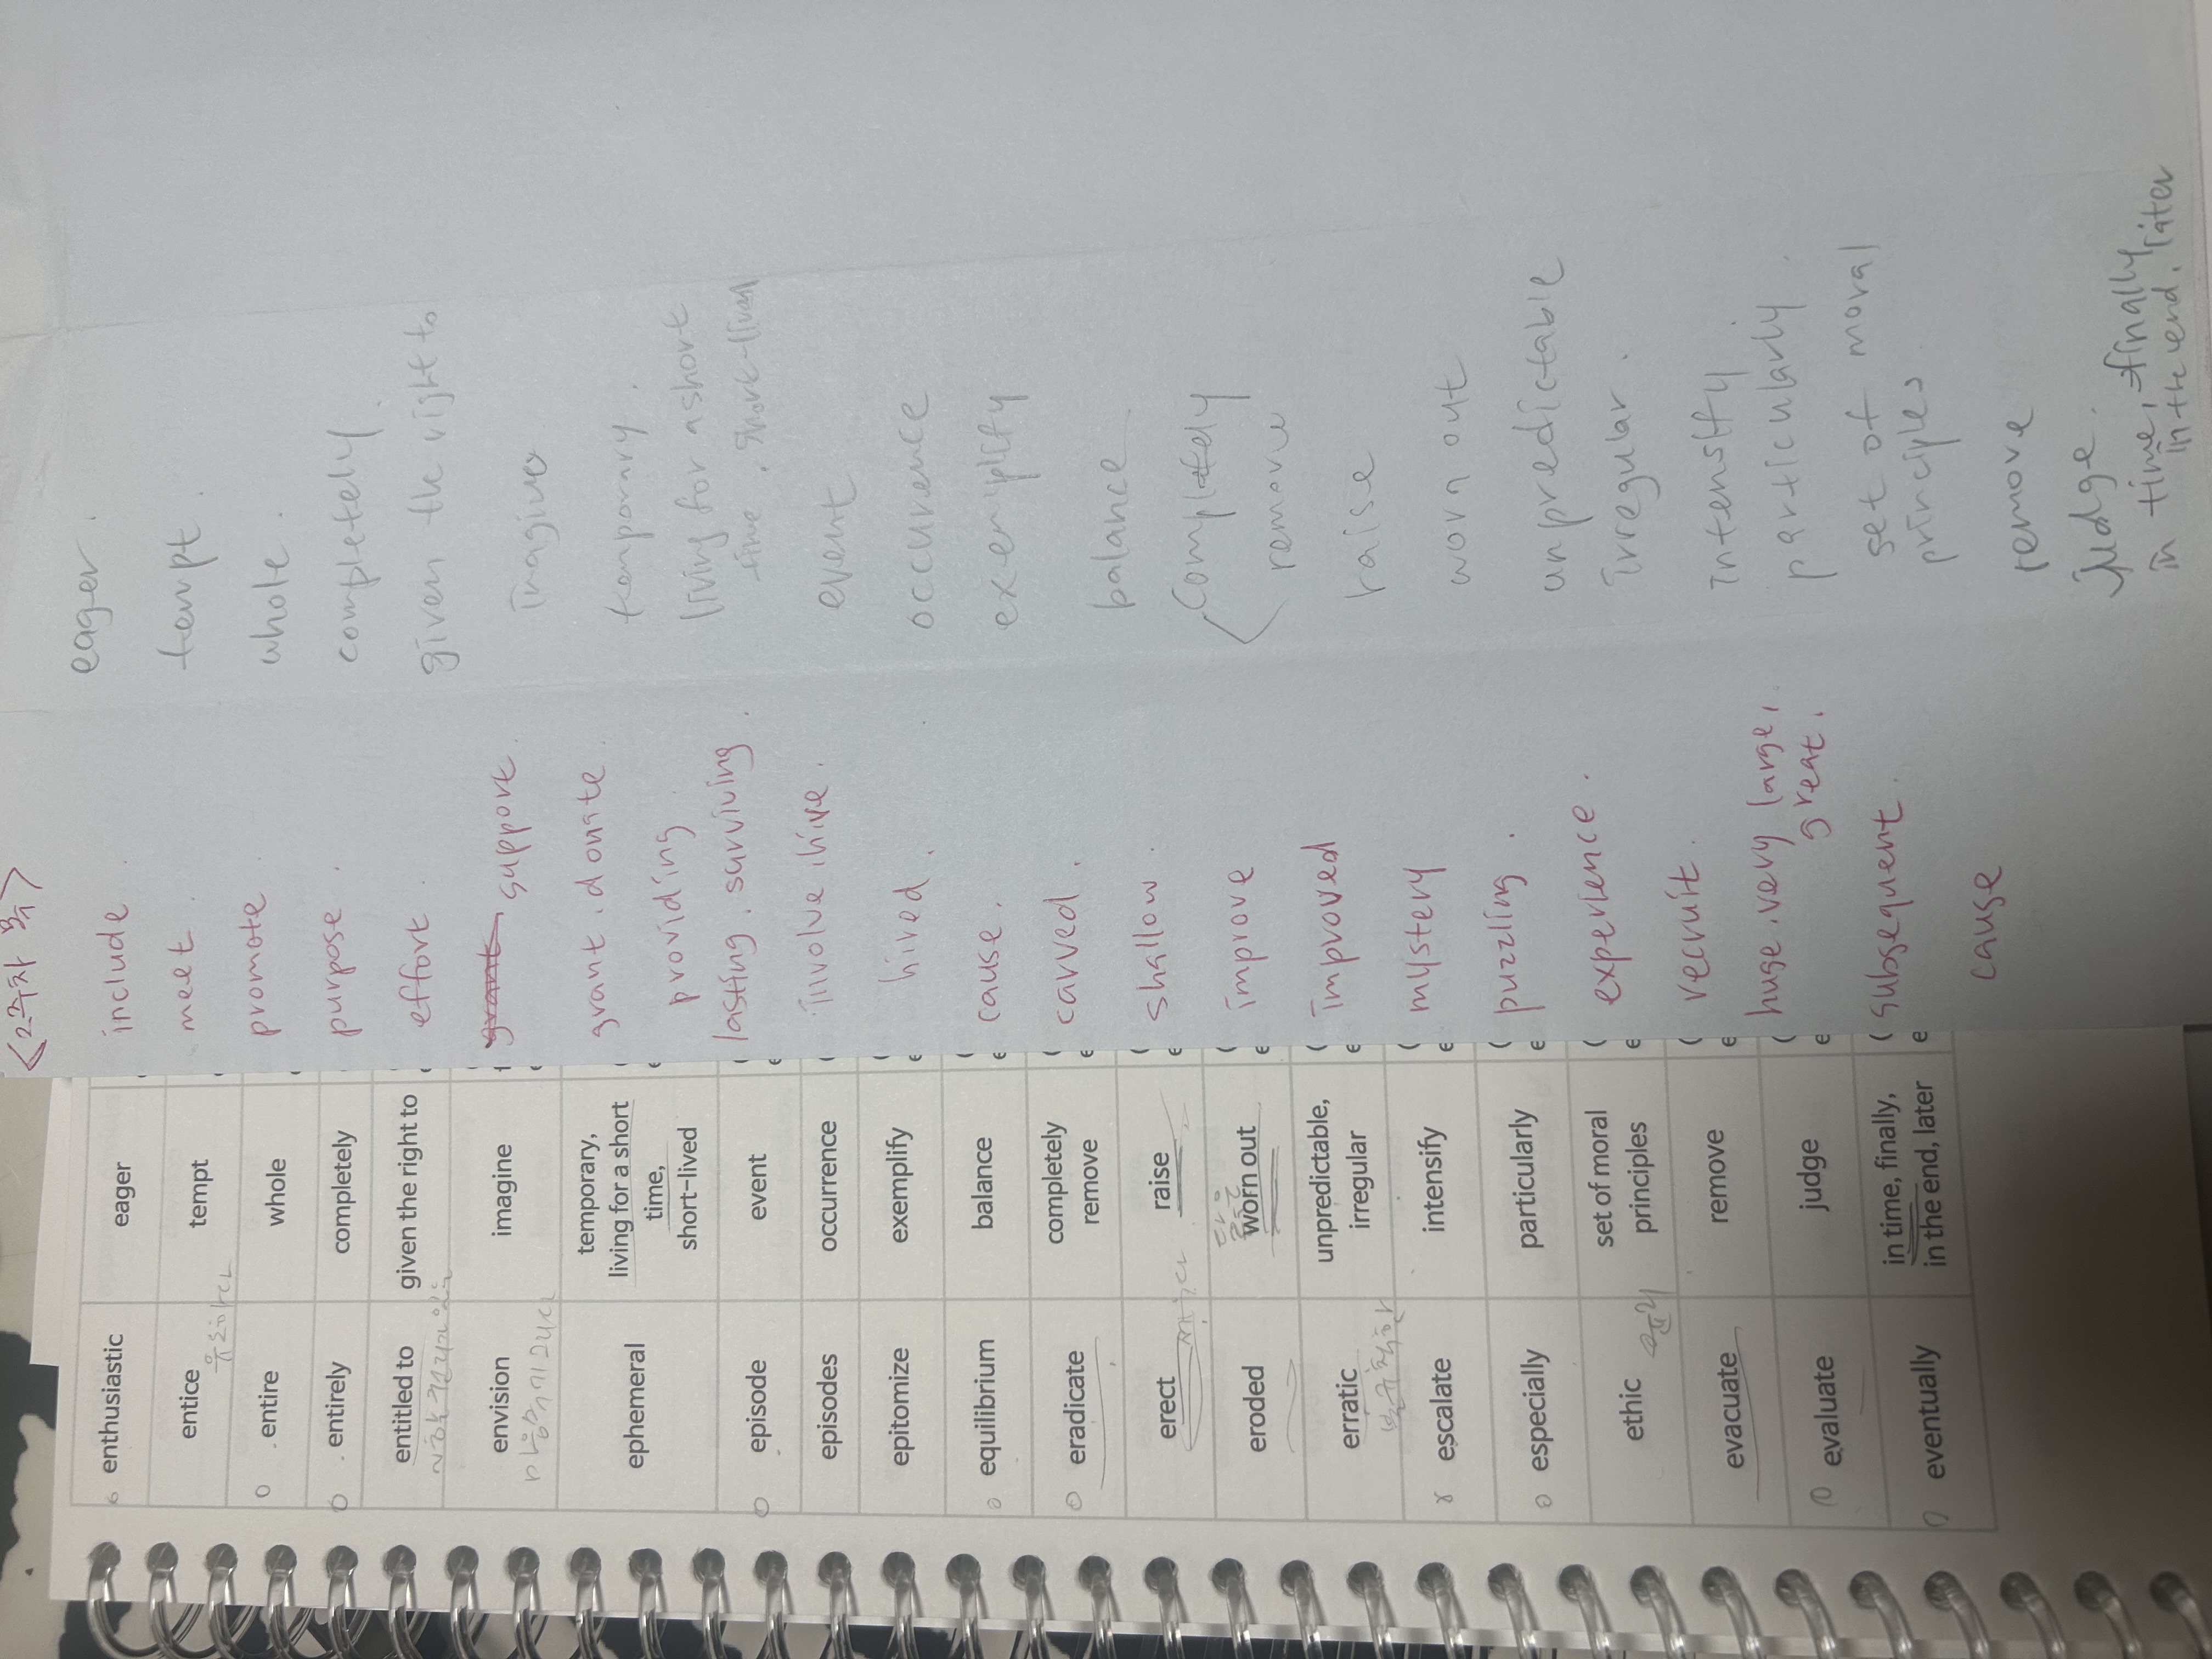 enthusiastic
eager
entice
유혹하다
tempt
entire
whole
entirely
completely
entitled to
given the right to
envision
imagine
ephemeral
temporary,
living for a short
time,
short-lived
episode
event
episodes
occurrence
epitomize
exemplify
equilibrium
balance
eradicate
completely
remove
erect
세우다
raise
eroded
닳은
worn out
erratic
불규칙한
unpredictable,
irregular
escalate
intensify
especially
particularly
ethic
윤리
set of moral
principles
evacuate
remove
evaluate
judge
eventually
in time, finally,
in the end, later
<2주차 목>
include
meet.
promote
purpose.
effort.
support.
grant. donate.
providing
lasting. surviving.
involve. hire.
hired.
cause.
carved.
shallow.
improve
improved
mystery
puzzling.
experience.
recruit.
huge. very large,
great.
subsequent.
cause
eager.
tempt.
whole.
completely.
given the right to
imagine
temporary.
living for a short
time. short-lived
event
occurence
exemplify
balance
completely
remove
raise
worn out
unpredictable
irregular.
intensify
particularly.
set of moral
principles
remove
judge.
in time, finally
in the end. later